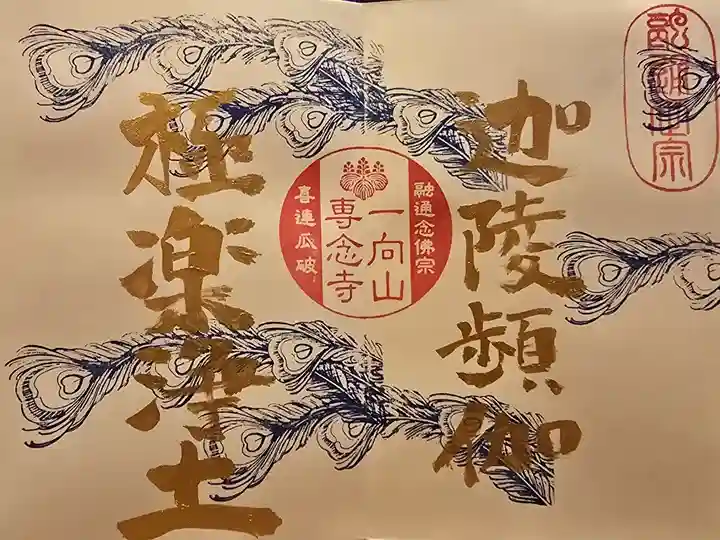 融通念佛宗
迦陵頻伽
融通念佛宗
一向山
専念寺
喜連瓜破
極楽浄土